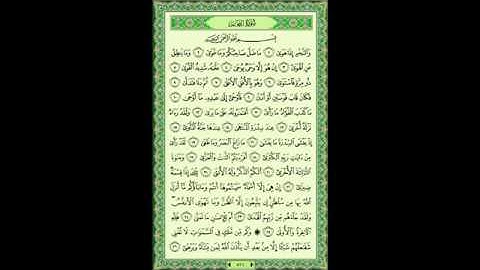 سُورَةُ النَّجْمِ
بِسْمِ اللَّهِ الرَّحْمَٰنِ الرَّحِيمِ
وَالنَّجْمِ إِذَا هَوَىٰ ١ مَا ضَلَّ صَاحِبُكُمْ وَمَا غَوَىٰ ٢ وَمَا يَنطِقُ
عَنِ الْهَوَىٰ ٣ إِنْ هُوَ إِلَّا وَحْيٌ يُوحَىٰ ٤ عَلَّمَهُ شَدِيدُ الْقُوَىٰ ٥
ذُو مِرَّةٍ فَاسْتَوَىٰ ٦ وَهُوَ بِالْأُفُقِ الْأَعْلَىٰ ٧ ثُمَّ دَنَا فَتَدَلَّىٰ ٨
فَكَانَ قَابَ قَوْسَيْنِ أَوْ أَدْنَىٰ ٩ فَأَوْحَىٰ إِلَىٰ عَبْدِهِ مَا أَوْحَىٰ ١٠
مَا كَذَبَ الْفُؤَادُ مَا رَأَىٰ ١١ أَفَتُمَارُونَهُ عَلَىٰ مَا يَرَىٰ ١٢ وَلَقَدْ رَءَاهُ
نَزْلَةً أُخْرَىٰ ١٣ عِندَ سِدْرَةِ الْمُنتَهَىٰ ١٤ عِندَهَا جَنَّةُ الْمَأْوَىٰ ١٥
إِذْ يَغْشَى السِّدْرَةَ مَا يَغْشَىٰ ١٦ مَا زَاغَ الْبَصَرُ وَمَا طَغَىٰ ١٧ لَقَدْ رَأَىٰ
مِنْ ءَايَاتِ رَبِّهِ الْكُبْرَىٰ ١٨ أَفَرَءَيْتُمُ اللَّاتَ وَالْعُزَّىٰ ١٩ وَمَنَوٰةَ
الثَّالِثَةَ الْأُخْرَىٰ ٢٠ أَلَكُمُ الذَّكَرُ وَلَهُ الْأُنثَىٰ ٢١ تِلْكَ إِذًا قِسْمَةٌ
ضِيزَىٰ ٢٢ إِنْ هِيَ إِلَّا أَسْمَاءٌ سَمَّيْتُمُوهَا أَنتُمْ وَءَابَاؤُكُم مَّا أَنزَلَ
اللَّهُ بِهَا مِن سُلْطَانٍ إِن يَتَّبِعُونَ إِلَّا الظَّنَّ وَمَا تَهْوَى الْأَنفُسُ
وَلَقَدْ جَاءَهُم مِّن رَّبِّهِمُ الْهُدَىٰ ٢٣ أَمْ لِلْإِنسَانِ مَا تَمَنَّىٰ ٢٤ فَلِلَّهِ
الْآخِرَةُ وَالْأُولَىٰ ٢٥ ۞ وَكَم مِّن مَّلَكٍ فِي السَّمَاوَاتِ لَا تُغْنِي
شَفَاعَتُهُمْ شَيْئًا إِلَّا مِن بَعْدِ أَن يَأْذَنَ اللَّهُ لِمَن يَشَاءُ وَيَرْضَىٰ ٢٦
٥٢٦